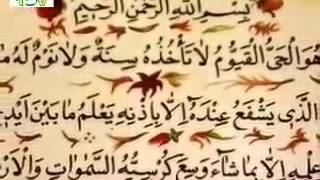 بِسْمِ اللهِ الرَّحْمٰنِ الرَّحِيمِ
هُوَ الْحَيُّ الْقَيُّومُ لَا تَأْخُذُهُ سِنَةٌ وَلَا نَوْمٌ لَهُ مَا
الَّذِي يَشْفَعُ عِنْدَهُ إِلَّا بِإِذْنِهِ يَعْلَمُ مَا بَيْنَ أَيْدِ
عِلْمِهِ إِلَّا بِمَا شَاءَ وَسِعَ كُرْسِيُّهُ السَّمٰوَاتِ وَالْأَرْ